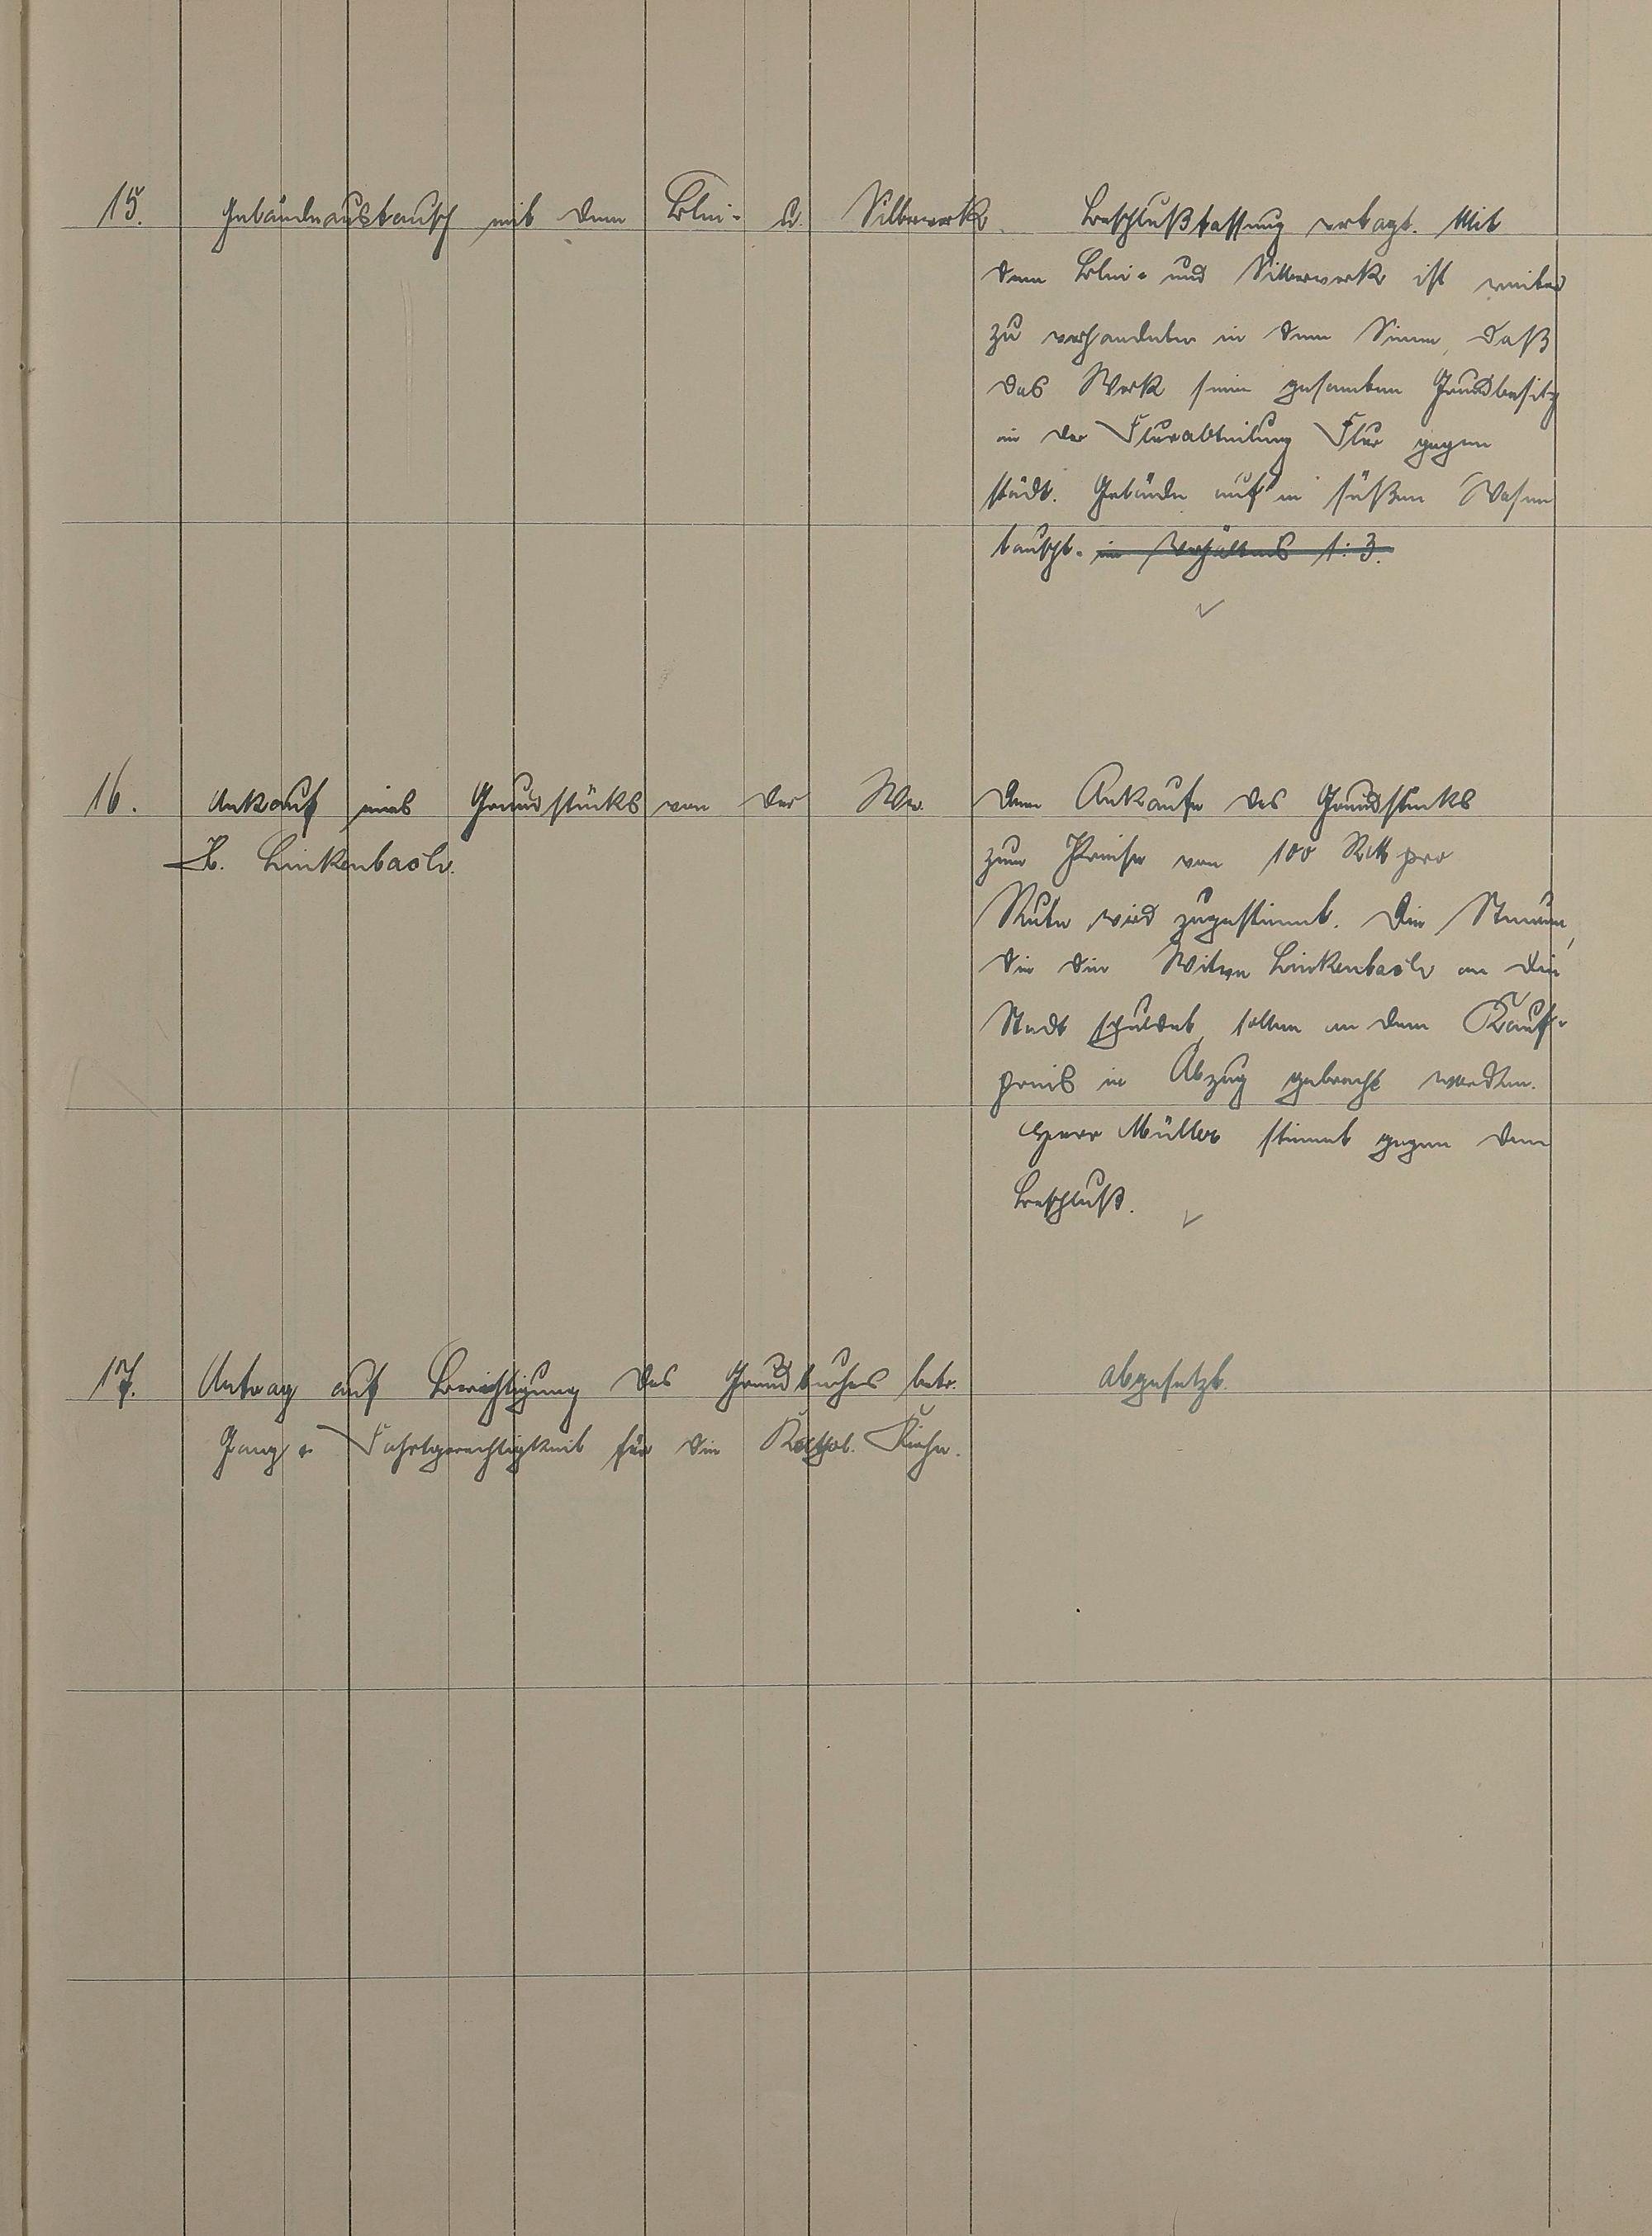 15. Geländeaustausch mit dem Blei- u. Silberwerk.
Beschlußfassung vertagt. Mit
dem Blei- und Silberwerk ist weiter
zu verhandeln in dem Sinne, daß
das Werk seinen gesamten Grundbesitz
in der Flurabteilung Flur gegen
städt. Gelände auf'm süßen Wasen
tauscht. im Verhältnis 1:3.
16. Ankauf eines Grundstücks von der Ww.
H. Linkenbach.
Dem Ankaufe des Grundstücks
zum Preise von 100 RM pro
Rute wird zugestimmt. Die Steuern,
die die Witwe Linkenbach an die
Stadt schuldet, sollen an dem Kauf-
preis in Abzug gebracht werden.
Herr Müller stimmt gegen den
Beschluß.
17. Antrag auf Berichtigung des Grundbuches betr.
Gang- Fahrtgerechtigkeit für die Kathol. Kirche.
abgesetzt.